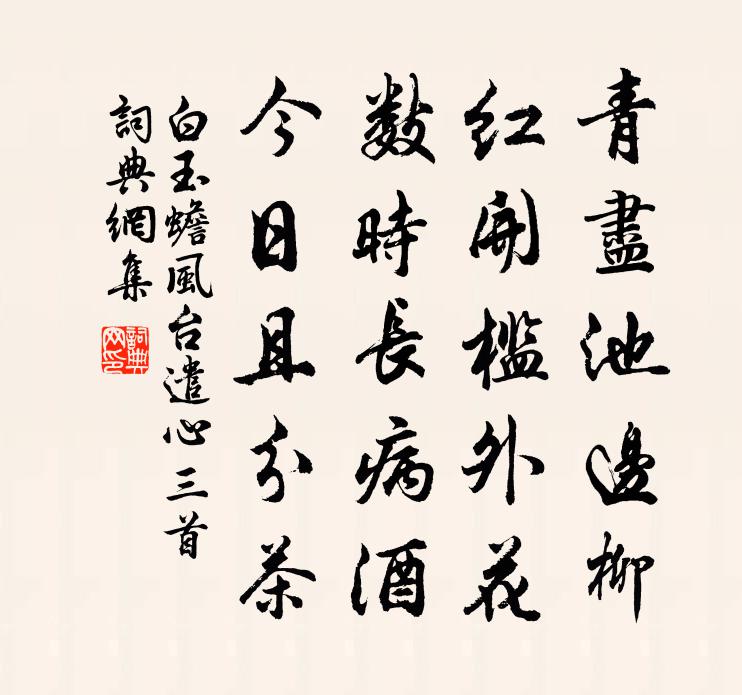 青盡池邊柳
紅開檻外花
數時長病酒
今日且分茶
白玉蟾風台遣心三首
詞典網集
詞典网印